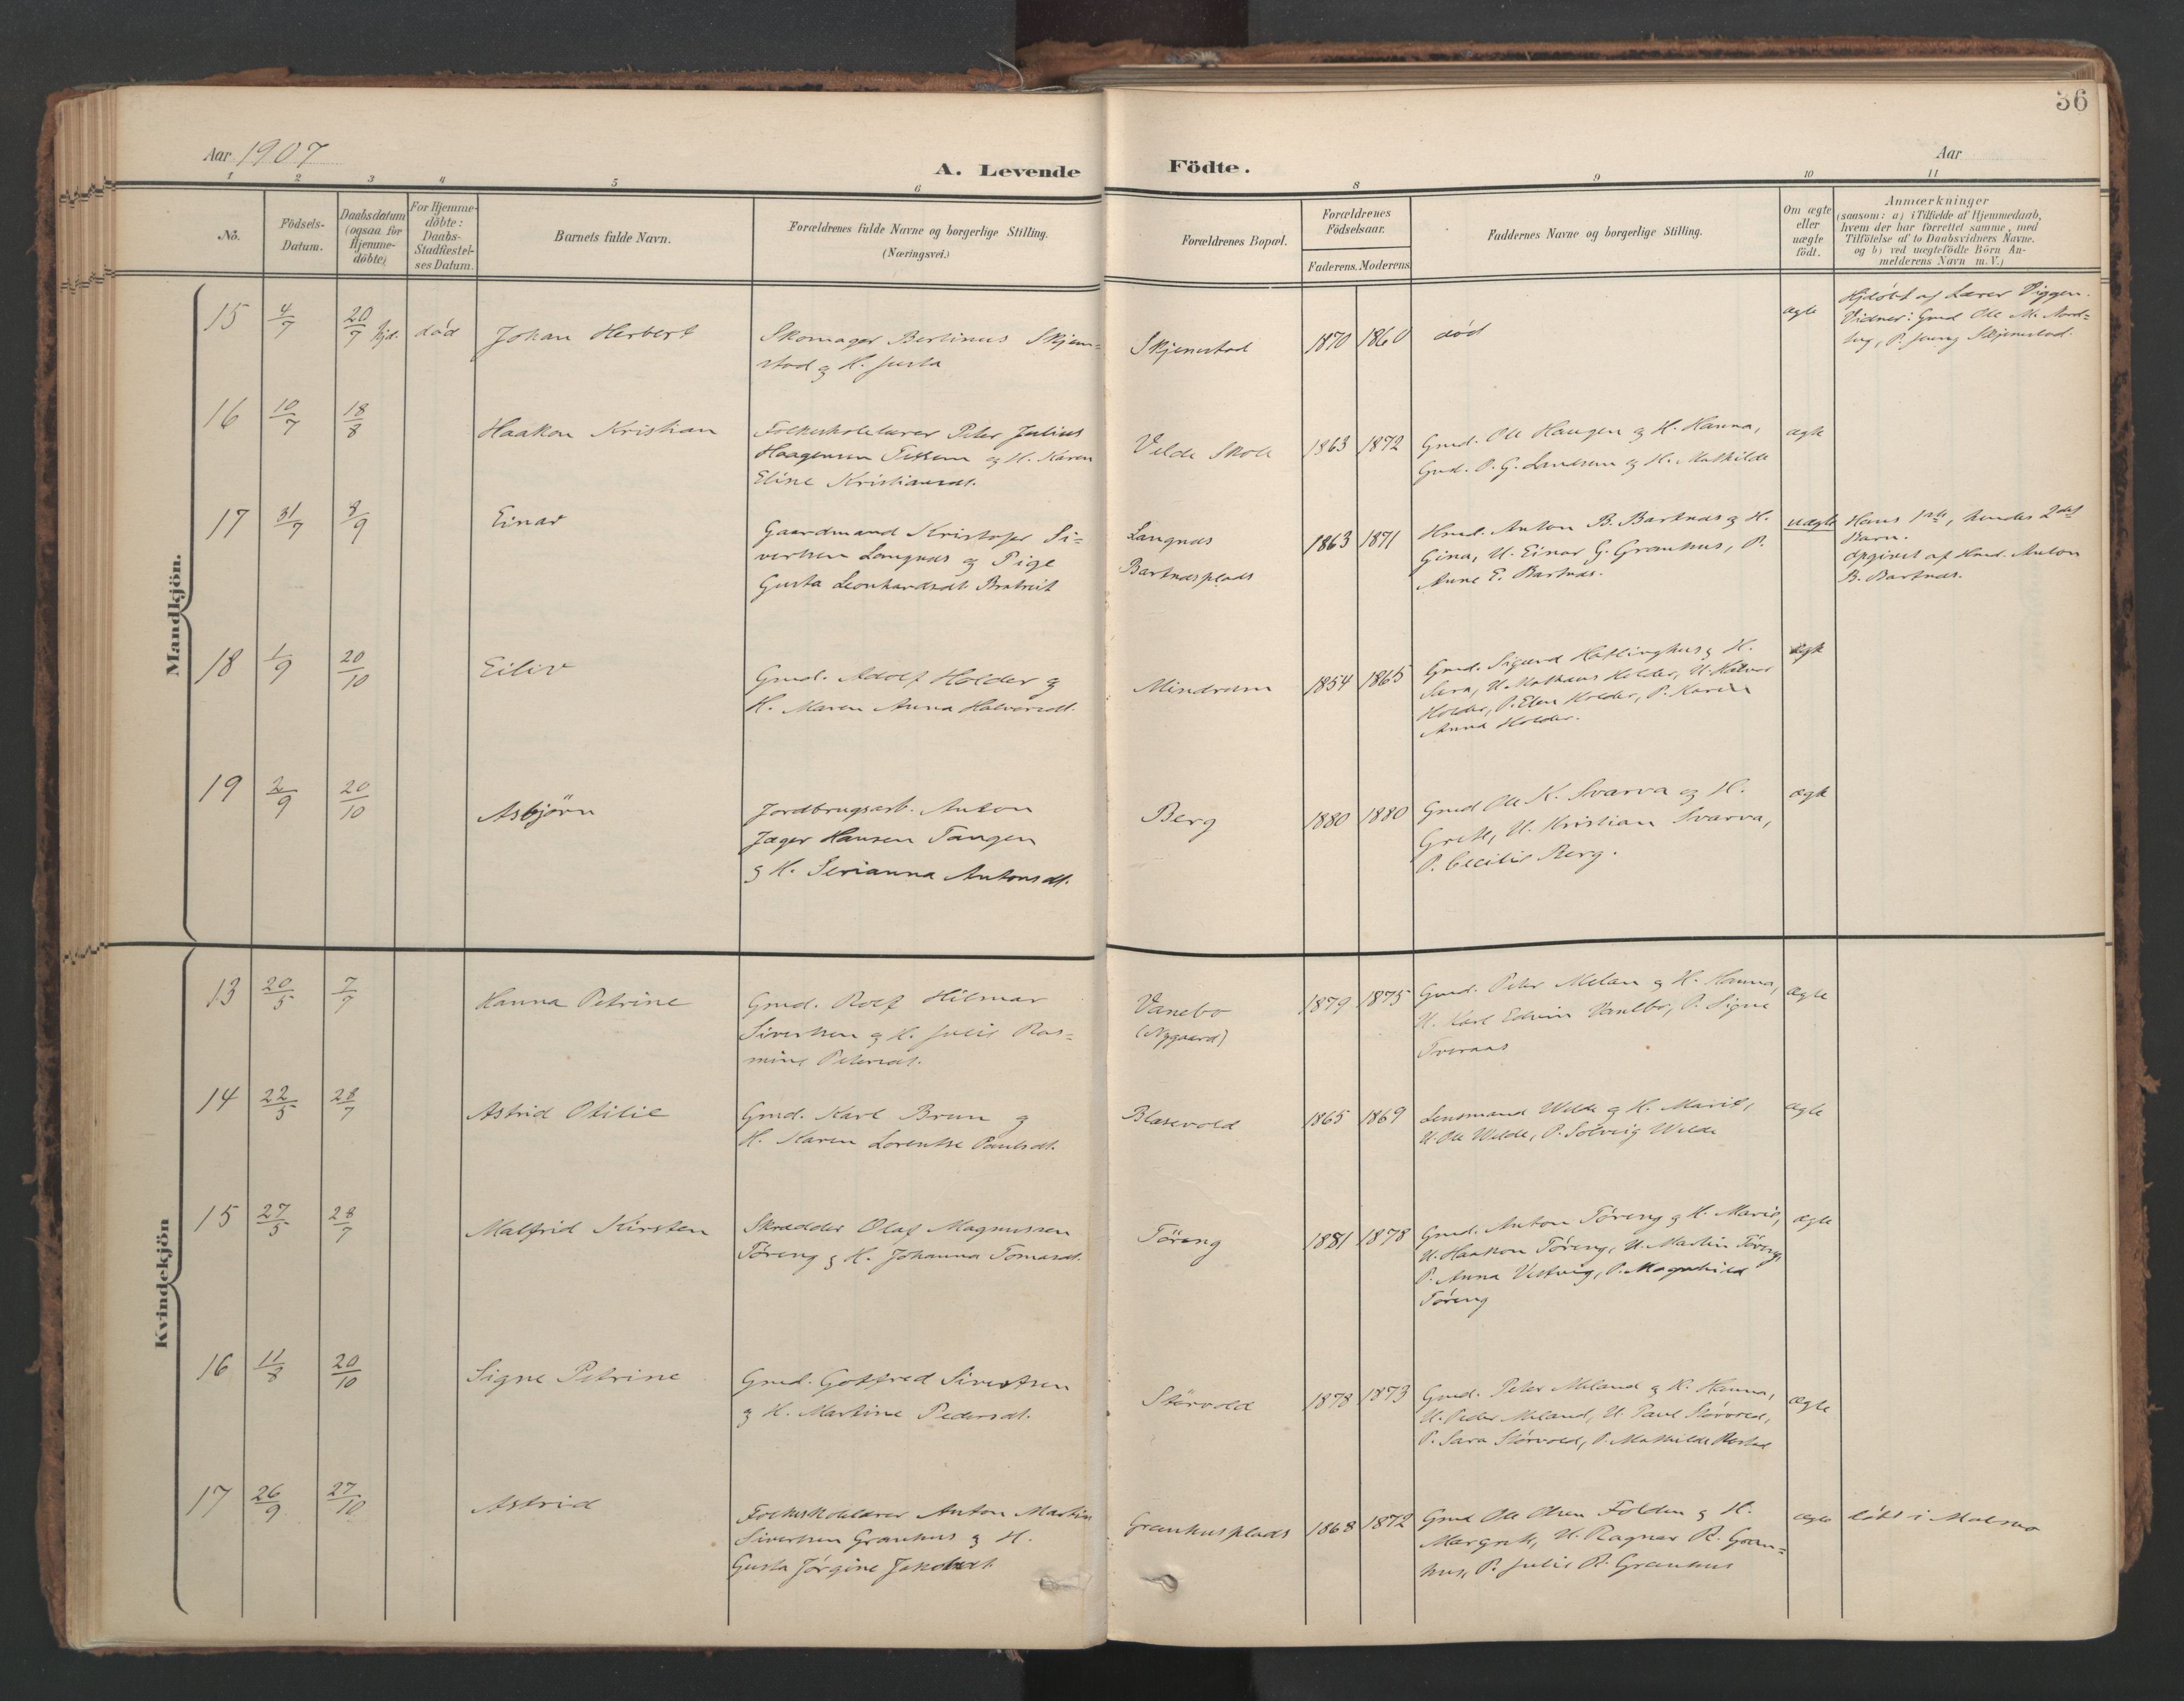 36
Aar 1907
A. Levende Födte.
Aar
1 2 3 4 5 6 8 9 10 11
Nô.
Födsels-
Datum.
Daabsdatum
(ogsaa for
Hjemme-
döbte)
For Hjemme-
döbte:
Daabs-
Stadfæstel-
ses Datum.
Barnets fulde Navn.
Forældrenes fulde Navne og borgerlige Stilling.
(Næringsvei.)
Forældrenes Bopæl.
Forældrenes
Födselsaar.
Faderens. Moderens.
Faddernes Navne og borgerlige Stilling.
Om ægte
eller
uægte
födt.
Anmærkninger
(saasom: a) i Tilfælde af Hjemmedaab,
hvem der har forrettet samme, med
Tilföielse af to Daabsvidners Navne.
og b) ved uægtefödte Börn An-
melderens Navn m. V.)
Mandkjön.
15 4/7 20/7 hjd. död Johan Herbert
Skomager Berlinus Skjem=
stad og H. Justa
Skjemstad
1870 1860
død
ægte
Hjdöbt af Lærer Viggen.
Vidner: Gmd Ole M. Nord=
Skjemstad.
16 10/7 18/8 Haakon Kristian
Folkeskolelærer Peter Julius
Haagensen Tessem og H. Karen
Eline Kristiansdt.
Velde Skole
1863 1872
Gmd. Ole Haugen og H. Hanna,
Gmd. P. G. Landsem og H. Mathilde
ægte
17 31/7 8/9 Einar
Gaardmand Kristofer Si=
vertsen Langnæs og Pige
Gusta Leonhardsdt. Bratreit
Langnæs
Bartnæsplads
1863 1871
Hmd. Anton B. Bartnæs og H.
Gina, U. Einar G. Granhus, P.
Anne E. Bartnæs.
uægte
Hans 1ste, hendes 2det
Barn.
Opgivet af Hmd. Anton
B. Bartnæs.
18 1/9 20/10 Eiliv
Gmd. Adolf Holder og
H. Maren Anna Halvorsdt.
Mindrum
1854 1865
Gmd. Sigurd Hatlinghus og H.
Sara, U. Mathæus Holder, U. Halvor
Holder, P. Elen Holder, P. Karen
Anna Holder.
ægte
19 2/9 20/10 Asbjörn
Jordbrugsarb. Anton
Jæger Hansen Tangen
og H. Serianna Antonsdt.
Berg
1880 1880
Gmd Ole K. Svarva og H.
Grete, U. Kristian Svarva,
P. Cecilie Berg.
ægte
Kvindekjön
13 20/5 7/7 Hanna Petrine
Gmd. Rolf Hilmar
Sivertsen og H. Julie Ras=
mine Petersdt.
Vanebo
(Nygaard)
1879 1875
Gmd. Peter Melan og H. Hanna,
U. Karl Edvin Vanebo, P. Signe
Tveraas
ægte
14 22/5 28/7 Astrid Otilie
Gmd. Karl Brun og
H. Karen Lorentse Paulsdt.
Blasevold
1865 1869
Lensmand Welde og H. Marit,
U. Ole Welde, P. Solveig Welde
ægte
15 27/5 28/7 Malfrid Kirsten
Skrædder Olaf Magnussen
Töreng og H. Johanna Tomasdt.
Töreng
1881 1878
Gmd. Anton Töreng og H. Marie,
U. Haakon Töreng, U. Martin Töreng,
P. Anna Vestvig, P. Magnhild
Töreng
ægte
16 11/8 20/10 Signe Petrine
Gmd. Gotfred Sivertsen
og H. Martine Pedersdt.
Störvold
1878 1873
Gmd. Peter Meland og H. Hanna,
U. Peder Meland, U. Paul Störvold,
P. Sara Störvold, P. Mathilde
ægte
17 26/9 27/10 Astrid
Folkeskolelærer Anton Martin
Sivertsen Granhus og H.
Gusta Jörgine Jakobsdt.
Granhusplads
1868 1872
Gmd Ole Olsen Folden og H.
Margrete, U. Ragnar R. Gran=
hus, P. Julie R. Granhus
ægte
döbt i Malmo